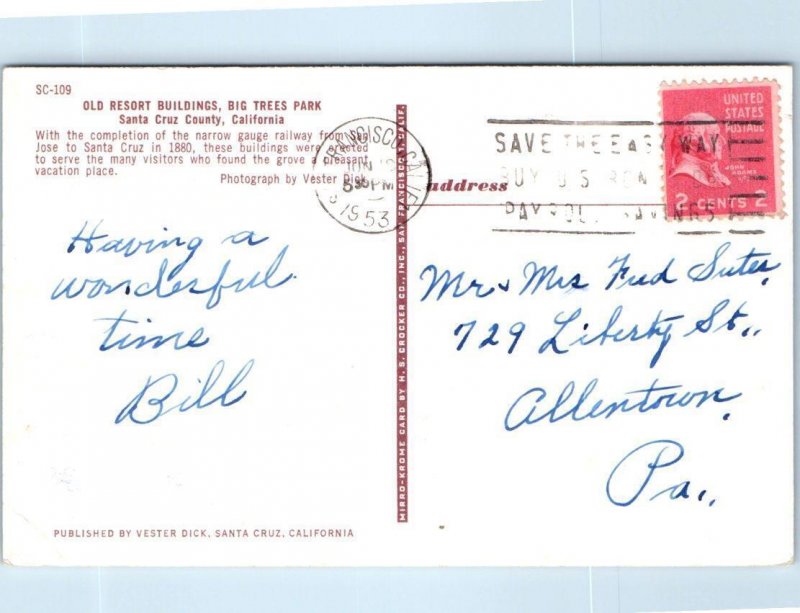 SC-109
OLD RESORT BUILDINGS, BIG TREES PARK
Santa Cruz County, California
With the completion of the narrow gauge railway from San
Jose to Santa Cruz in 1880, these buildings were erected
to serve the many visitors who found the grove a pleasant
vacation place.
Photograph by Vester Dick
Having a
wonderful
time
Bill
PUBLISHED BY VESTER DICK, SANTA CRUZ, CALIFORNIA
MIRRO-KROME CARD BY H. S. CROCKER CO., INC., SAN FRANCISCO, CALIF.
FRANCISCO, CALIF.
PM
1953
SAVE THE EASY WAY
BUY U.S.
PAYROLL SAVINGS
address
UNITED
STATES
POSTAGE
JOHN
ADAMS
2 CENTS 2
Mr & Mrs Fred Suter,
729 Liberty St.,
Allentown,
Pa.,